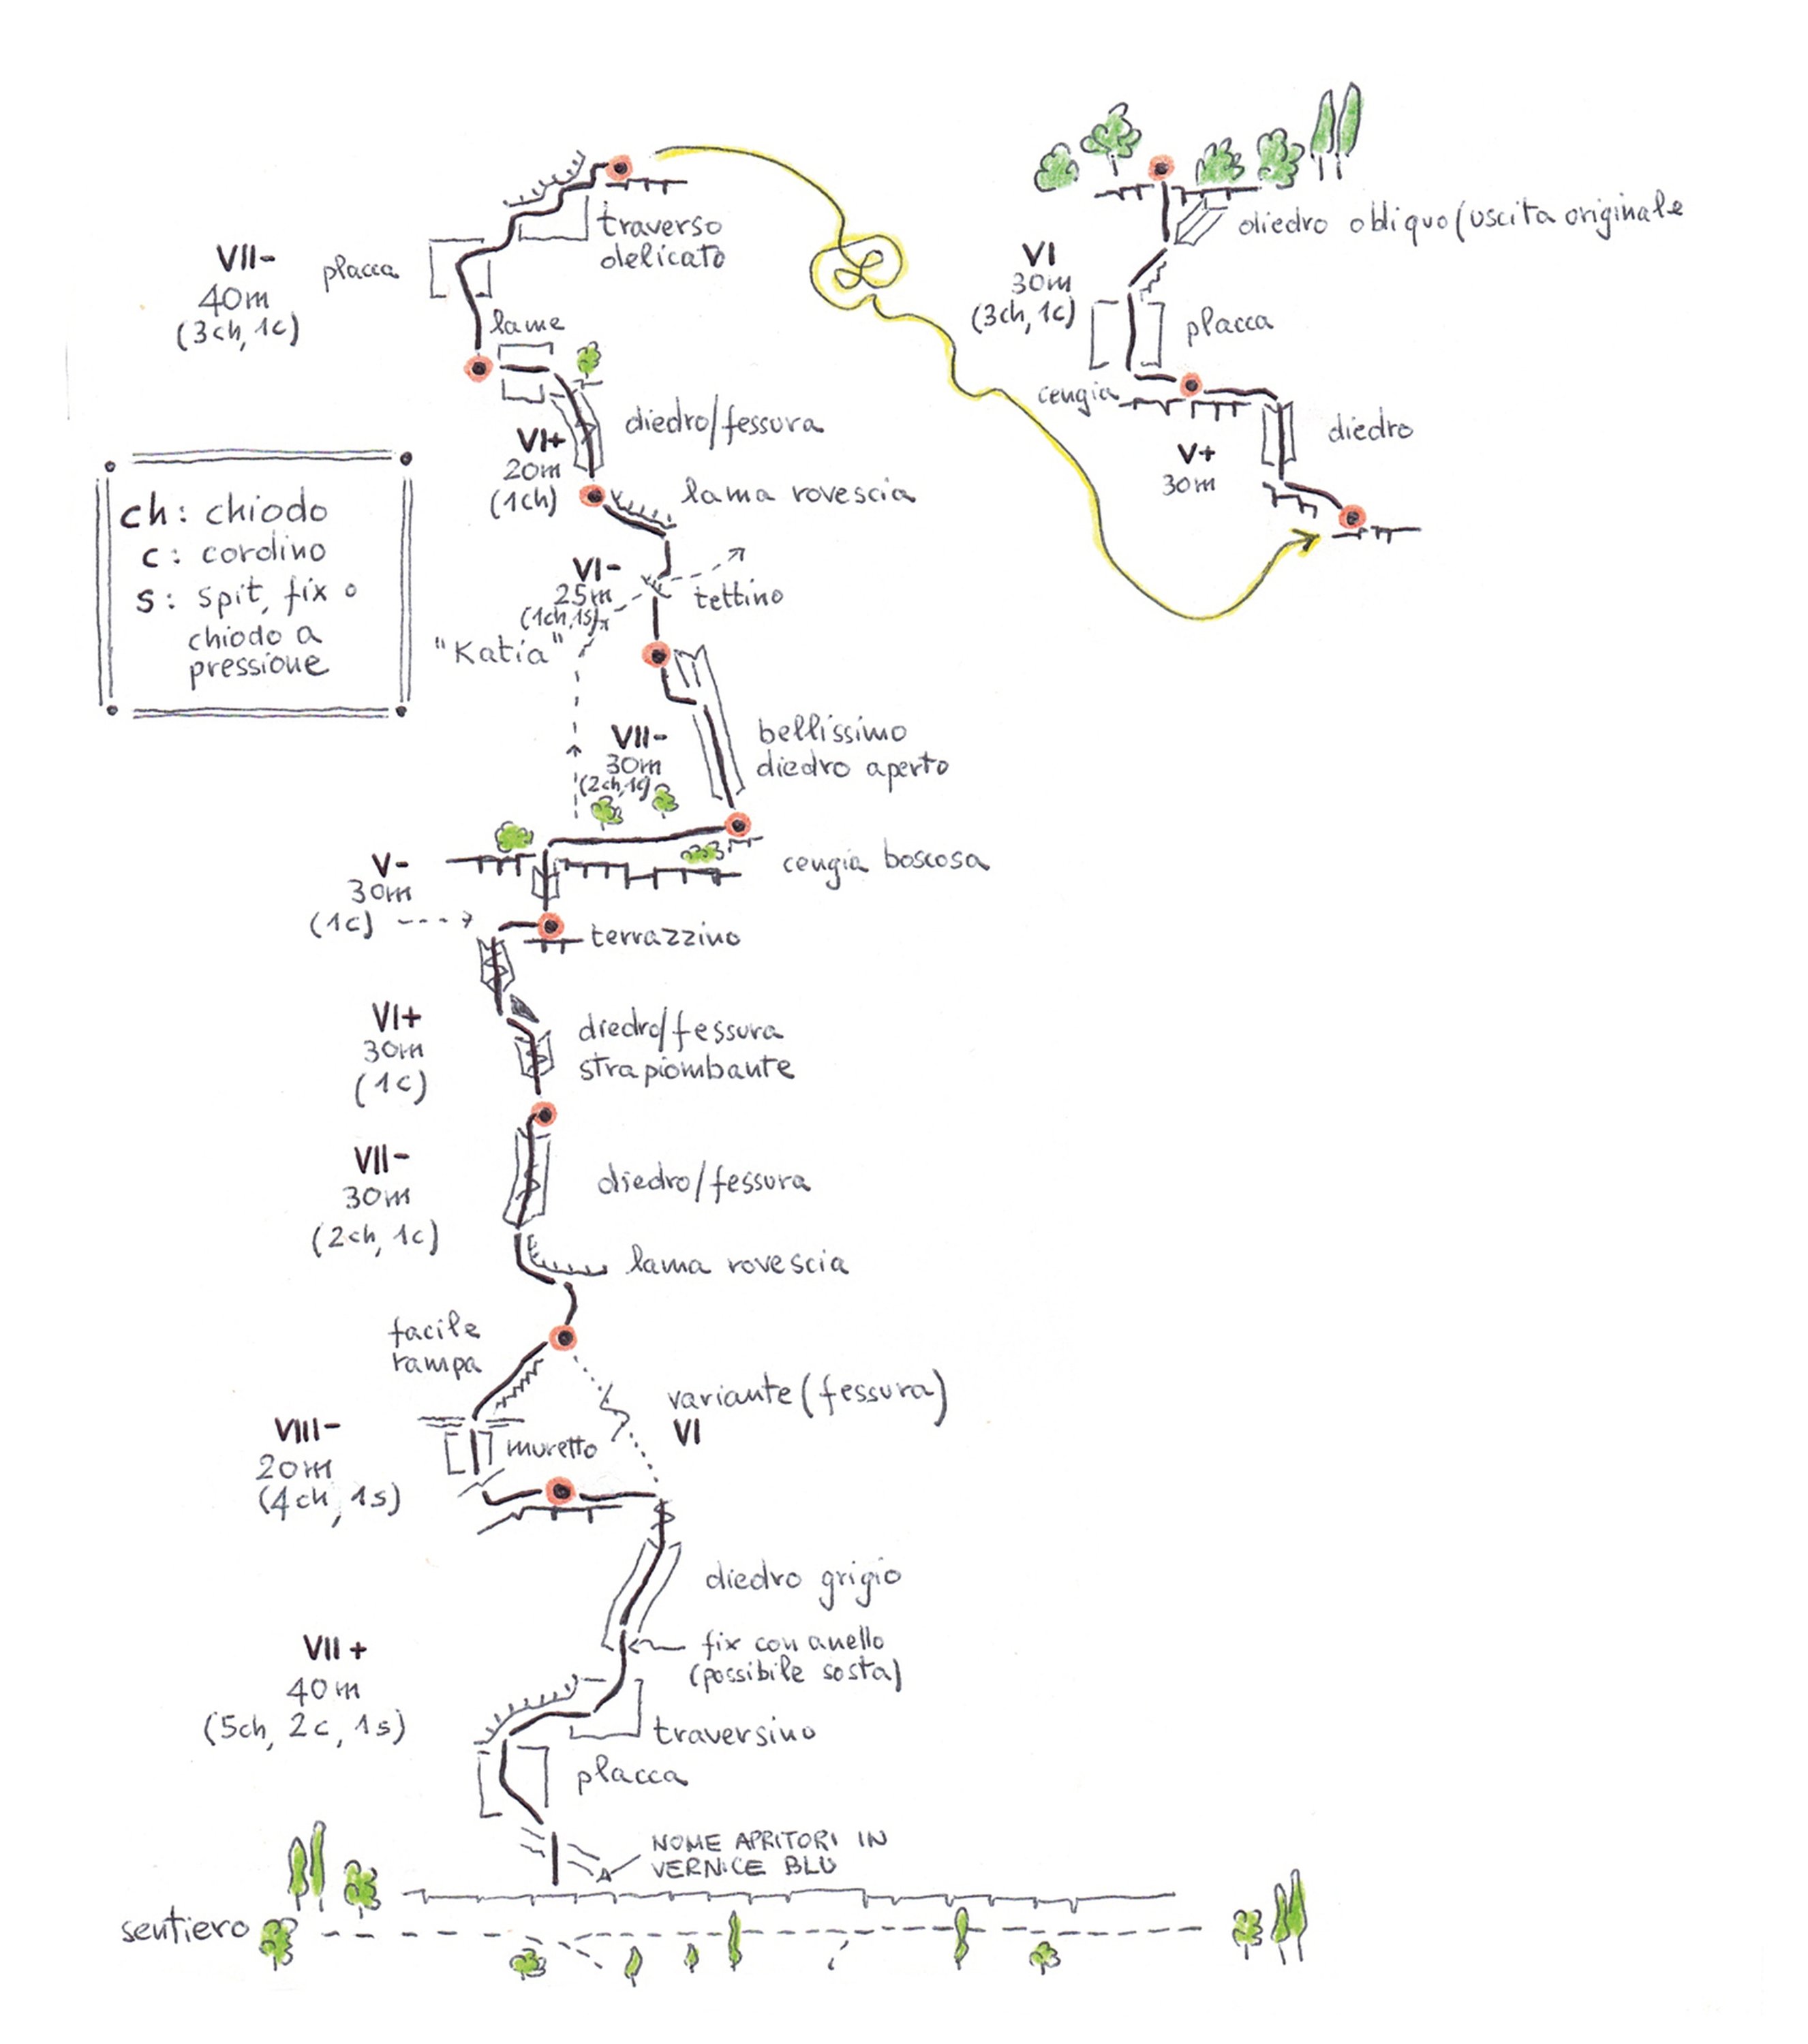 traverso
delicato
VII-
40m
(3ch, 1c)
placca
lame
diedro/fessura
VI+
20m
(1ch)
lama rovescia
VI-
25m
(1ch, 1s)
tettino
"Katia"
ch: chiodo
c: cordino
s: spit, fix o
chiodo a
pressione
VII-
30m
(2ch, 1c)
bellissimo
diedro aperto
cengia boscosa
V-
30m
(1c)
terrazzino
VI+
30m
(1c)
diedro/fessura
strapiombante
VII-
30m
(2ch, 1c)
diedro/fessura
lama rovescia
facile
rampa
variante (fessura)
VI
VIII-
20m
(4ch, 1s)
muretto
diedro grigio
fix con anello
(possibile sosta)
VII+
40m
(5ch, 2c, 1s)
traversino
placca
NOME APRITORI IN
VERNICE BLU
sentiero
diedro obliquo (uscita originale
VI
30m
(3ch, 1c)
placca
cengia
diedro
V+
30m